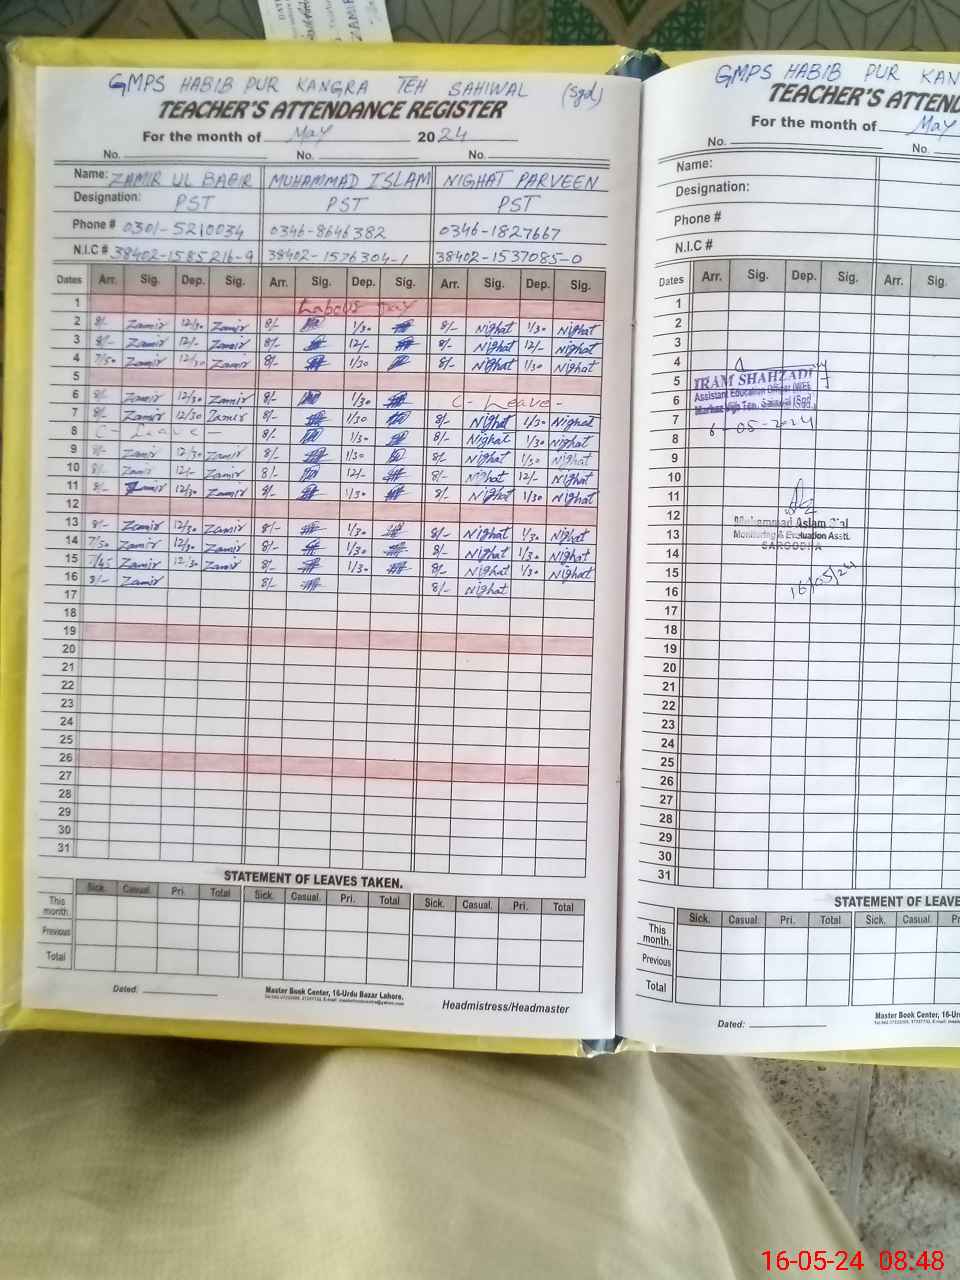 GMPS HABIB PUR KANGRA TEH SAHIWAL (Sgd)
TEACHER'S ATTENDANCE REGISTER
For the month of May 2024
No. No. No.
Name: ZAMIR UL BABIR MUHAMMAD ISLAM NIGHAT PARVEEN
Designation: PST PST PST
Phone # 0301-5210034 0346-8646382 0346-1827667
N.I.C # 38402-1585216-9 38402-1576304-1 38402-1537085-0
Dates Arr. Sig. Dep. Sig. Arr. Sig. Dep. Sig. Arr. Sig. Dep. Sig.
1 Labour Day
2 8/- Zamir 12/30 Zamir 8/- 1/30 8/- Nighat 1/30 Nighat
3 8/- Zamir 12/- Zamir 8/- 12/- 8/- Nighat 12/- Nighat
4 7/50 Zamir 12/30 Zamir 8/- 1/30 8/- Nighat 1/30 Nighat
5
6 8/- Zamir 12/30 Zamir 8/- 1/30 C- Leave -
7 8/- Zamir 12/30 Zamir 8/- 1/30 8/- Nighat 1/30 Nighat
8 C- Leave 8/- 1/30 8/- Nighat 1/30 Nighat
9 8/- Zamir 12/30 Zamir 8/- 1/30 8/- Nighat 1/30 Nighat
10 8/- Zamir 12/- Zamir 8/- 12/- 8/- Nighat 12/- Nighat
11 8/- Zamir 12/30 Zamir 8/- 1/30 8/- Nighat 1/30 Nighat
12
13 8/- Zamir 12/30 Zamir 8/- 1/30 8/- Nighat 1/30 Nighat
14 7/50 Zamir 12/30 Zamir 8/- 1/30 8/- Nighat 1/30 Nighat
15 7/45 Zamir 12/30 Zamir 8/- 1/30 8/- Nighat 1/30 Nighat
16 8/- Zamir 8/- 8/- Nighat
17
18
19
20
21
22
23
24
25
26
27
28
29
30
31
STATEMENT OF LEAVES TAKEN.
Sick. Casual. Pri. Total Sick. Casual. Pri. Total Sick. Casual. Pri. Total
This month.
Previous
Total
Dated:
Master Book Center, 16-Urdu Bazar Lahore.
Headmistress/Headmaster
GMPS HABIB PUR KAN
TEACHER'S ATTEN
For the month of May
No. No.
Name:
Designation:
Phone #
N.I.C #
Dates Arr. Sig. Dep. Sig. Arr. Sig.
1
2
3
4
5
6
7
8
9
10
11
12
13
14
15
16
17
18
19
20
21
22
23
24
25
26
27
28
29
30
31
IRAM SHAHZADI
Assistant Education Officer (WEE
6-05-2024
Muhammad Aslam
Monitoring & Evaluation Asstt.
SARGODHA
16/05/24
STATEMENT OF LEAVE
Sick. Casual. Pri. Total Sick. Casual.
This month.
Previous
Total
Dated:
Master Book Center, 16-Ur
16-05-24 08.48